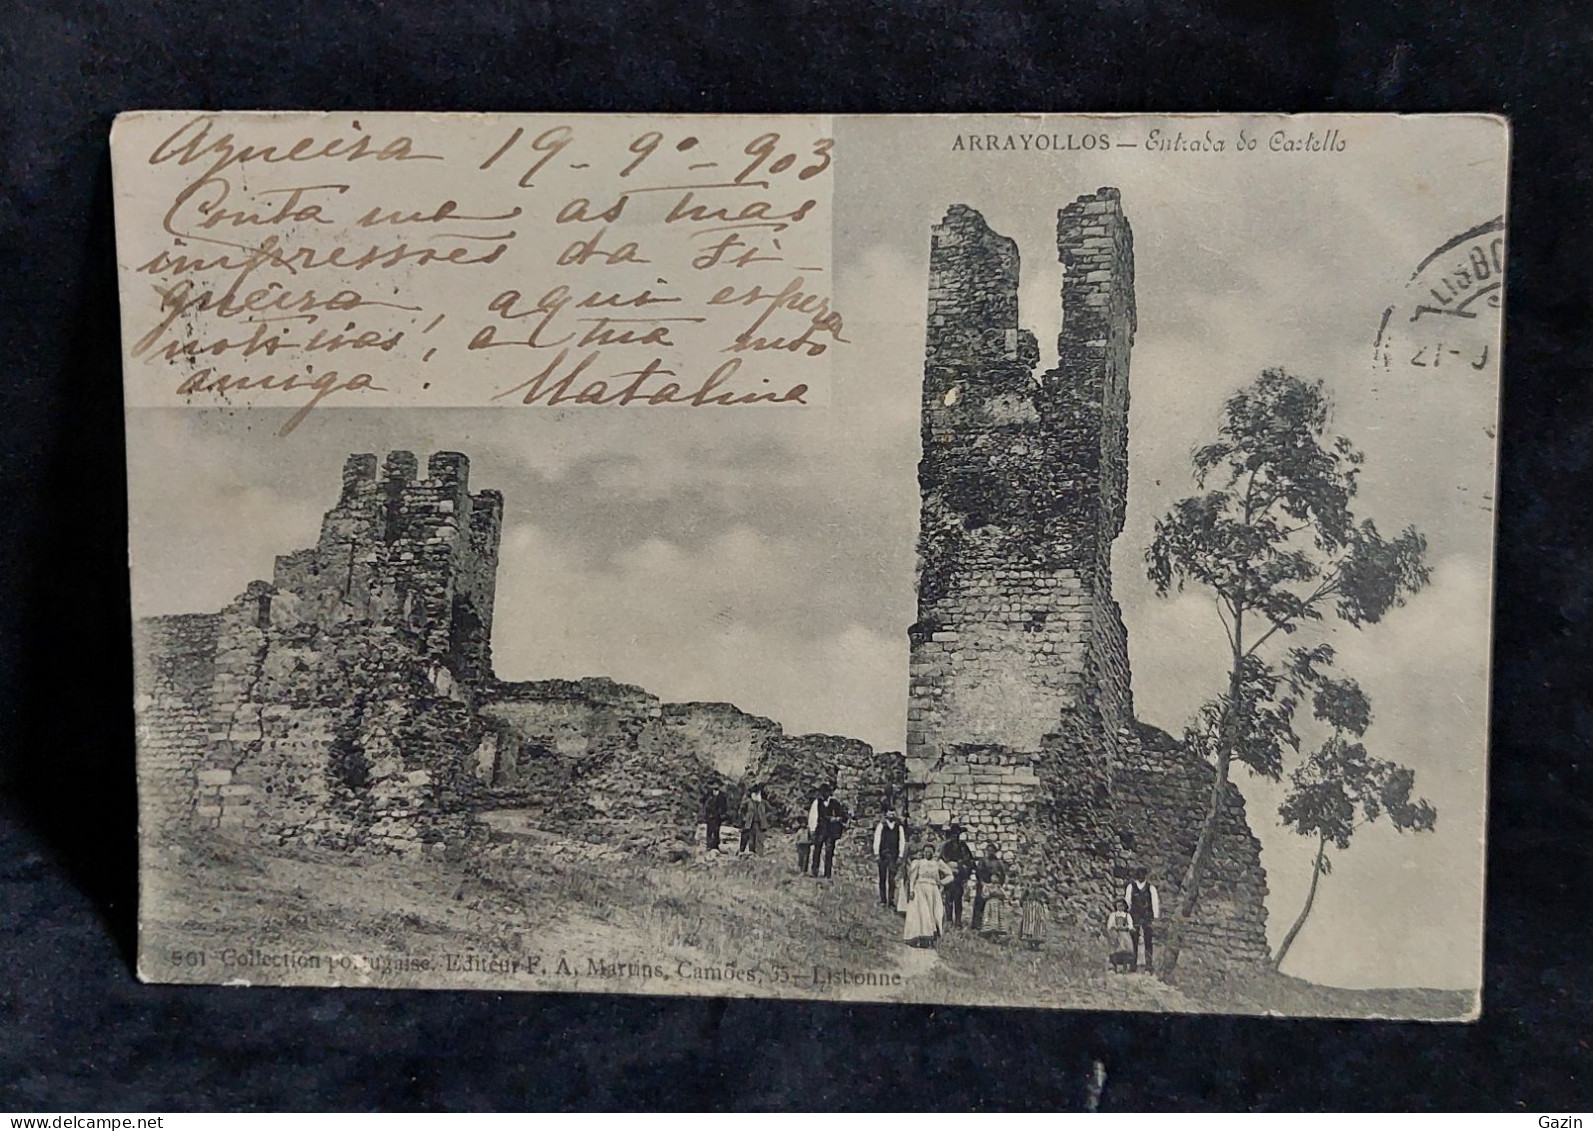 Azueira 19-9º-903
Conta me as tuas
impressões da Fi-
gueira, aqui espera
noticias, a tua mto
amiga. Mataline
ARRAYOLLOS — Entrada do Castello
LISBO
21-9
861 Collection portugaise. Editeur F. A. Martins, Camões, 35—Lisbonne
delcampe.net
Gazin